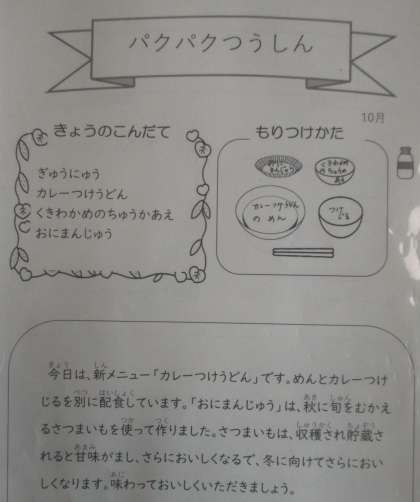 パクパクつうしん
10月
きょうのこんだて
ぎゅうにゅう
カレーつけうどん
くきわかめのちゅうかあえ
おにまんじゅう
もりつけかた
おに
まんじゅう
くきわかめ
のちゅうか
あえ
カレーつけうどん
のめん
つけ
じる
今日は、新メニュー「カレーつけうどん」です。めんとカレーつけ
じるを別に配食しています。「おにまんじゅう」は、秋に旬をむかえ
るさつまいもを使って作りました。さつまいもは、収穫され貯蔵さ
れると甘味がまし、さらにおいしくなるで、冬に向けてさらにおい
しくなります。味わっておいしくいただきましょう。